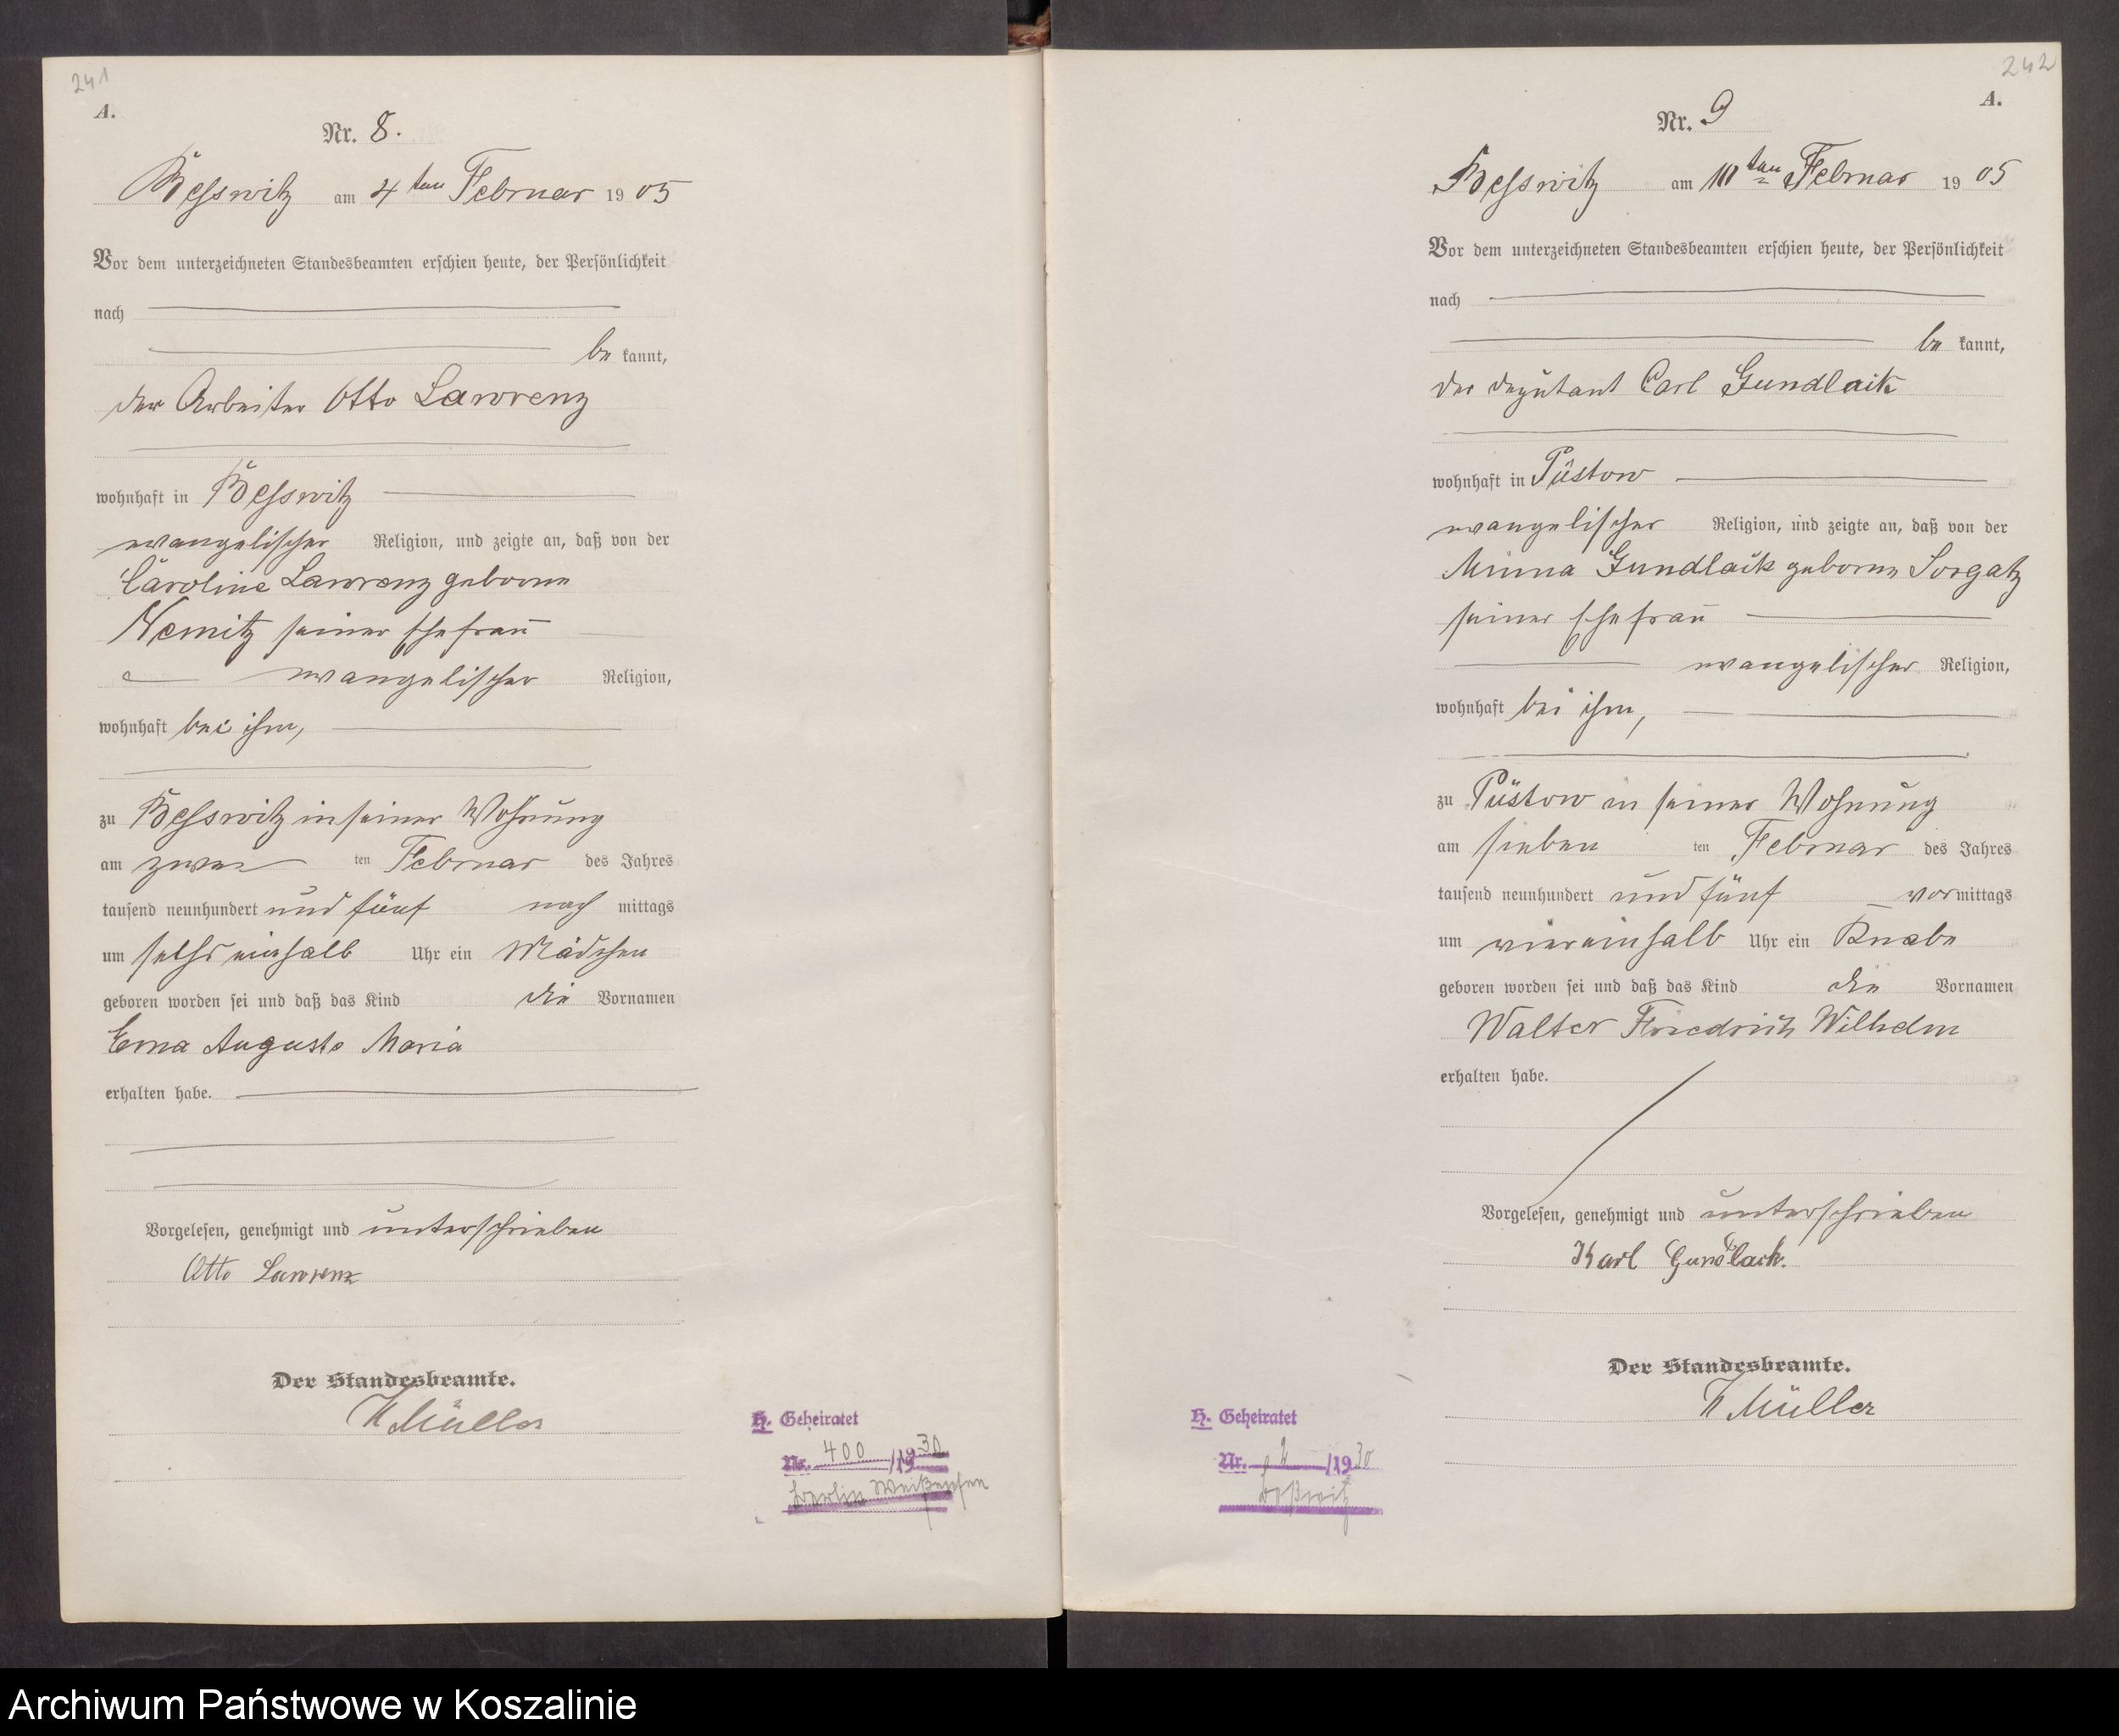 241
A.
Nr. 8.
Besswitz am 4ten Februar 1905
Vor dem unterzeichneten Standesbeamten erschien heute, der Persönlichkeit
nach
be kannt,
der Arbeiter Otto Lawrenz
wohnhaft in Besswitz
evangelischer Religion, und zeigte an, daß von der
Caroline Lawrenz geborene
Nemitz seiner Ehefrau
evangelischer Religion,
wohnhaft bei ihm,
zu Besswitz in seiner Wohnung
am zwei ten Februar des Jahres
tausend neunhundert und fünf nach mittags
um sechs einhalb Uhr ein Mädchen
geboren worden sei und daß das Kind die Vornamen
Erna Auguste Maria
erhalten habe.
Vorgelesen, genehmigt und unterschrieben
Otto Lawrenz
Der Standesbeamte.
Müller
H. Geheiratet
Nr. 400 /1930
Berlin Weißensee
242
A.
Nr. 9
Besswitz am 10ten Februar 1905
Vor dem unterzeichneten Standesbeamten erschien heute, der Persönlichkeit
nach
be kannt,
der Deputant Carl Gundlach
wohnhaft in Püstow
evangelischer Religion, und zeigte an, daß von der
Minna Gundlach geborene Sorgatz
seiner Ehefrau
evangelischer Religion,
wohnhaft bei ihm,
zu Püstow in seiner Wohnung
am sieben ten Februar des Jahres
tausend neunhundert und fünf vor mittags
um viereinhalb Uhr ein Knabe
geboren worden sei und daß das Kind die Vornamen
Walter Friedrich Wilhelm
erhalten habe.
Vorgelesen, genehmigt und unterschrieben
Karl Gundlach.
Der Standesbeamte.
Müller
H. Geheiratet
Nr. 2 /1930
Beßwitz
Archiwum Państwowe w Koszalinie